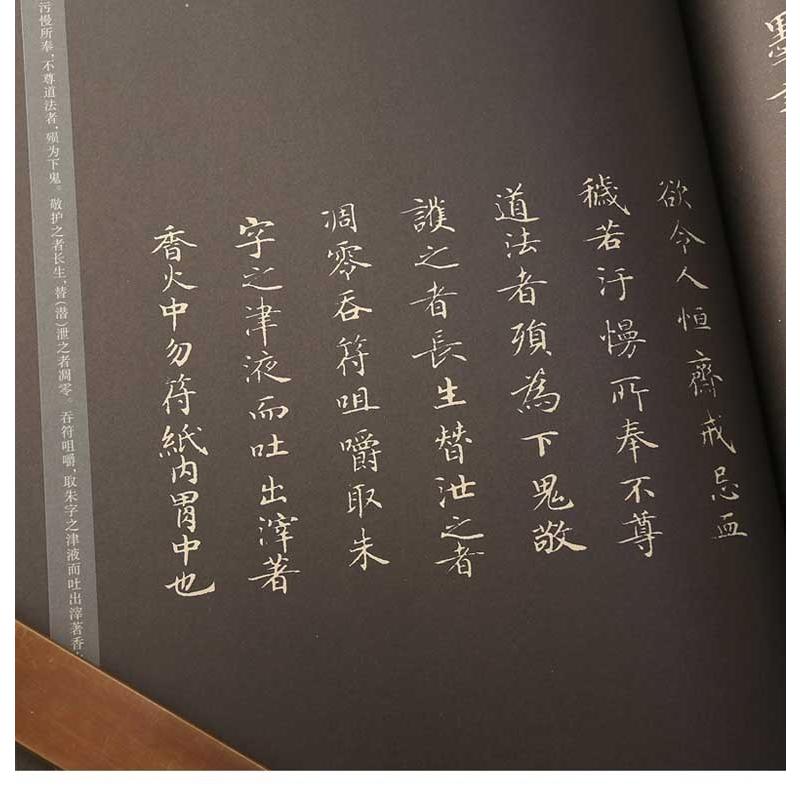 欲令人恒齋戒忌血
穢若汙慢所奉不尊
道法者殞為下鬼敬
護之者長生替泄之者
凋零吞符咀嚼取朱
字之津液而吐出滓著
香火中勿符紙內胃中也
污慢所奉，不尊道法者，殒为下鬼。敬护之者长生，替（潜）泄之者凋零。吞符咀嚼，取朱字之津液而吐出滓著香